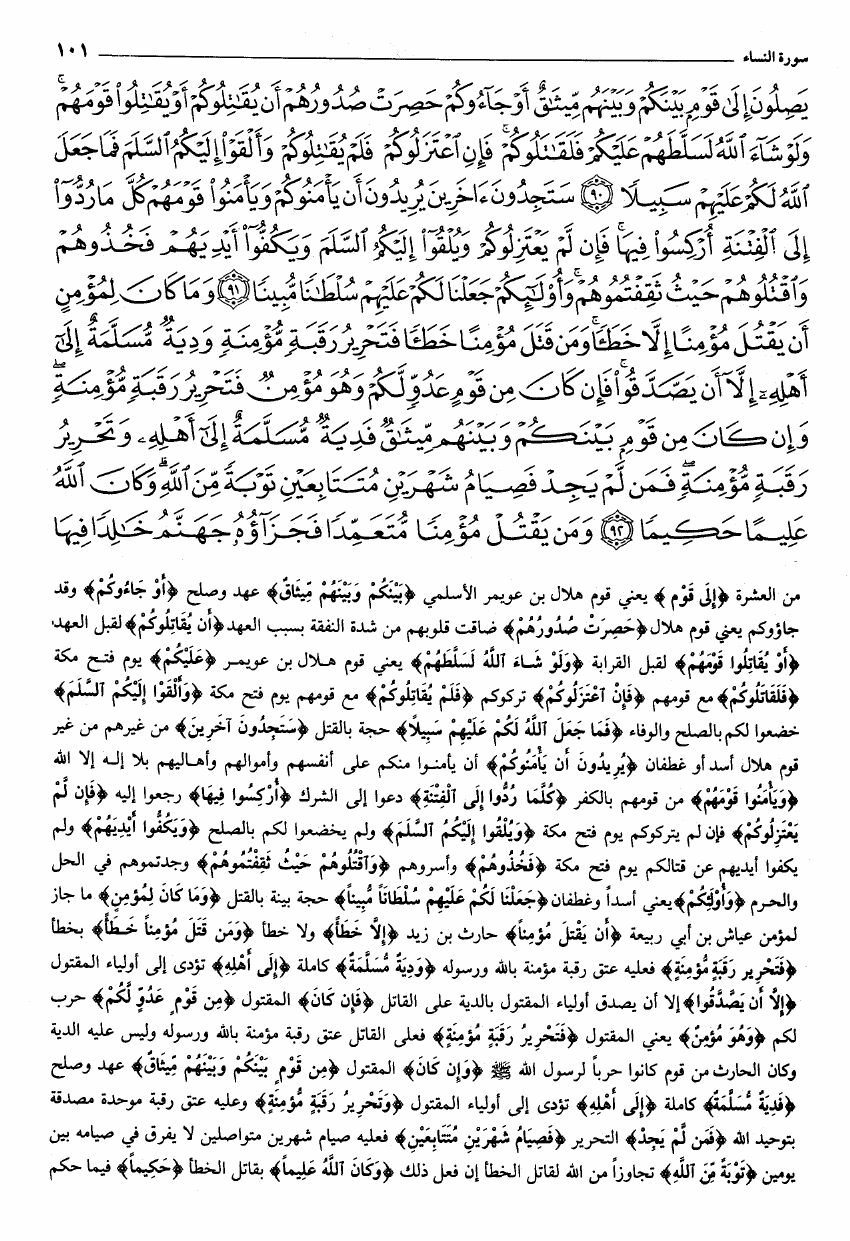 سورة النساء ١٠١
يَصِلُونَ إِلَىٰ قَوْمٍ بَيْنَكُمْ وَبَيْنَهُم مِّيثَٰقٌ أَوْ جَآءُوكُمْ حَصِرَتْ صُدُورُهُمْ أَن يُقَٰتِلُوكُمْ أَوْ يُقَٰتِلُوا۟ قَوْمَهُمْ ۚ
وَلَوْ شَآءَ ٱللَّهُ لَسَلَّطَهُمْ عَلَيْكُمْ فَلَقَٰتَلُوكُمْ ۚ فَإِنِ ٱعْتَزَلُوكُمْ فَلَمْ يُقَٰتِلُوكُمْ وَأَلْقَوْا۟ إِلَيْكُمُ ٱلسَّلَمَ فَمَا جَعَلَ
ٱللَّهُ لَكُمْ عَلَيْهِمْ سَبِيلًا ٩٠ سَتَجِدُونَ ءَاخَرِينَ يُرِيدُونَ أَن يَأْمَنُوكُمْ وَيَأْمَنُوا۟ قَوْمَهُمْ كُلَّ مَا رُدُّوٓا۟
إِلَى ٱلْفِتْنَةِ أُرْكِسُوا۟ فِيهَا ۚ فَإِن لَّمْ يَعْتَزِلُوكُمْ وَيُلْقُوٓا۟ إِلَيْكُمُ ٱلسَّلَمَ وَيَكُفُّوٓا۟ أَيْدِيَهُمْ فَخُذُوهُمْ
وَٱقْتُلُوهُمْ حَيْثُ ثَقِفْتُمُوهُمْ ۚ وَأُو۟لَٰٓئِكُمْ جَعَلْنَا لَكُمْ عَلَيْهِمْ سُلْطَٰنًا مُّبِينًا ٩١ وَمَا كَانَ لِمُؤْمِنٍ
أَن يَقْتُلَ مُؤْمِنًا إِلَّا خَطَـًٔا ۚ وَمَن قَتَلَ مُؤْمِنًا خَطَـًٔا فَتَحْرِيرُ رَقَبَةٍ مُّؤْمِنَةٍ وَدِيَةٌ مُّسَلَّمَةٌ إِلَىٰٓ
أَهْلِهِۦٓ إِلَّآ أَن يَصَّدَّقُوا۟ ۚ فَإِن كَانَ مِن قَوْمٍ عَدُوٍّ لَّكُمْ وَهُوَ مُؤْمِنٌ فَتَحْرِيرُ رَقَبَةٍ مُّؤْمِنَةٍ ۖ
وَإِن كَانَ مِن قَوْمٍ بَيْنَكُمْ وَبَيْنَهُم مِّيثَٰقٌ فَدِيَةٌ مُّسَلَّمَةٌ إِلَىٰٓ أَهْلِهِۦ وَتَحْرِيرُ
رَقَبَةٍ مُّؤْمِنَةٍ ۖ فَمَن لَّمْ يَجِدْ فَصِيَامُ شَهْرَيْنِ مُتَتَابِعَيْنِ تَوْبَةً مِّنَ ٱللَّهِ ۗ وَكَانَ ٱللَّهُ
عَلِيمًا حَكِيمًا ٩٢ وَمَن يَقْتُلْ مُؤْمِنًا مُّتَعَمِّدًا فَجَزَآؤُهُۥ جَهَنَّمُ خَٰلِدًا فِيهَا
من العشرة ﴿إِلَى قَوْمٍ﴾ يعني قوم هلال بن عويمر الأسلمي ﴿بَيْنَكُمْ وَبَيْنَهُمْ مِّيثَاقٌ﴾ عهد وصلح ﴿أَوْ جَاءُوكُمْ﴾ وقد
جاؤوكم يعني قوم هلال ﴿حَصِرَتْ صُدُورُهُمْ﴾ ضاقت قلوبهم من شدة النفقة بسبب العهد ﴿أَن يُقَاتِلُوكُمْ﴾ لقبل العهد
﴿أَوْ يُقَاتِلُوا قَوْمَهُمْ﴾ لقبل القرابة ﴿وَلَوْ شَاءَ اللَّهُ لَسَلَّطَهُمْ﴾ يعني قوم هلال بن عويمر ﴿عَلَيْكُمْ﴾ يوم فتح مكة
﴿فَلَقَاتَلُوكُمْ﴾ مع قومهم ﴿فَإِنْ اعْتَزَلُوكُمْ﴾ تركوكم ﴿فَلَمْ يُقَاتِلُوكُمْ﴾ مع قومهم يوم فتح مكة ﴿وَأَلْقَوْا إِلَيْكُمُ السَّلَمَ﴾
خضعوا لكم بالصلح والوفاء ﴿فَمَا جَعَلَ اللَّهُ لَكُمْ عَلَيْهِمْ سَبِيلاً﴾ حجة بالقتل ﴿سَتَجِدُونَ آخَرِينَ﴾ من غيرهم من غير
قوم هلال أسد أو غطفان ﴿يُرِيدُونَ أَن يَأْمَنُوكُمْ﴾ أن يأمنوا منكم على أنفسهم وأموالهم وأهاليهم بلا إله إلا الله
﴿وَيَأْمَنُوا قَوْمَهُمْ﴾ من قومهم بالكفر ﴿كُلَّمَا رُدُّوا إِلَى الْفِتْنَةِ﴾ دعوا إلى الشرك ﴿أُرْكِسُوا فِيهَا﴾ رجعوا إليه ﴿فَإِن لَّمْ
يَعْتَزِلُوكُمْ﴾ فإن لم يتركوكم يوم فتح مكة ﴿وَيُلْقُوا إِلَيْكُمُ السَّلَمَ﴾ ولم يخضعوا لكم بالصلح ﴿وَيَكُفُّوا أَيْدِيَهُمْ﴾ ولم
يكفوا أيديهم عن قتالكم يوم فتح مكة ﴿فَخُذُوهُمْ﴾ وأسروهم ﴿وَاقْتُلُوهُمْ حَيْثُ ثَقِفْتُمُوهُمْ﴾ وجدتموهم في الحل
والحرم ﴿وَأُوْلَئِكُمْ﴾ يعني أسداً وغطفان ﴿جَعَلْنَا لَكُمْ عَلَيْهِمْ سُلْطَاناً مُّبِيناً﴾ حجة بينة بالقتل ﴿وَمَا كَانَ لِمُؤْمِنٍ﴾ ما جاز
لمؤمن عياش بن أبي ربيعة ﴿أَن يَقْتُلَ مُؤْمِناً﴾ حارث بن زيد ﴿إِلَّا خَطَأً﴾ ولا خطأ ﴿وَمَن قَتَلَ مُؤْمِناً خَطَأً﴾ بخطأ
﴿فَتَحْرِير رَقَبَةٍ مُّؤْمِنَةٍ﴾ فعليه عتق رقبة مؤمنة بالله ورسوله ﴿وَدِيَةٌ مُّسَلَّمَةٌ﴾ كاملة ﴿إِلَى أَهْلِهِ﴾ تؤدى إلى أولياء المقتول
﴿إِلَّا أَن يَصَّدَّقُوا﴾ إلا أن يصدق أولياء المقتول بالدية على القاتل ﴿فَإِن كَانَ﴾ المقتول ﴿مِن قَوْمٍ عَدُوٍّ لَّكُمْ﴾ حرب
لكم ﴿وَهُوَ مُؤْمِنٌ﴾ يعني المقتول ﴿فَتَحْرِيرُ رَقَبَةٍ مُؤْمِنَةٍ﴾ فعلى القاتل عتق رقبة مؤمنة بالله ورسوله وليس عليه الدية
وكان الحارث من قوم كانوا حرباً لرسول الله ﷺ ﴿وَإِن كَانَ﴾ المقتول ﴿مِن قَوْمٍ بَيْنَكُمْ وَبَيْنَهُمْ مِّيثَاقٌ﴾ عهد وصلح
﴿فَدِيَةٌ مُّسَلَّمَةٌ﴾ كاملة ﴿إِلَى أَهْلِهِ﴾ تؤدى إلى أولياء المقتول ﴿وَتَحْرِيرُ رَقَبَةٍ مُّؤْمِنَةٍ﴾ وعليه عتق رقبة موحدة مصدقة
بتوحيد الله ﴿فَمَن لَّمْ يَجِدْ﴾ التحرير ﴿فَصِيَامُ شَهْرَيْنِ مُتَتَابِعَيْنِ﴾ فعليه صيام شهرين متواصلين لا يفرق في صيامه بين
يومين ﴿تَوْبَةً مِّنَ اللَّهِ﴾ تجاوزاً من الله لقاتل الخطأ إن فعل ذلك ﴿وَكَانَ اللَّهُ عَلِيماً﴾ بقاتل الخطأ ﴿حَكِيماً﴾ فيما حكم